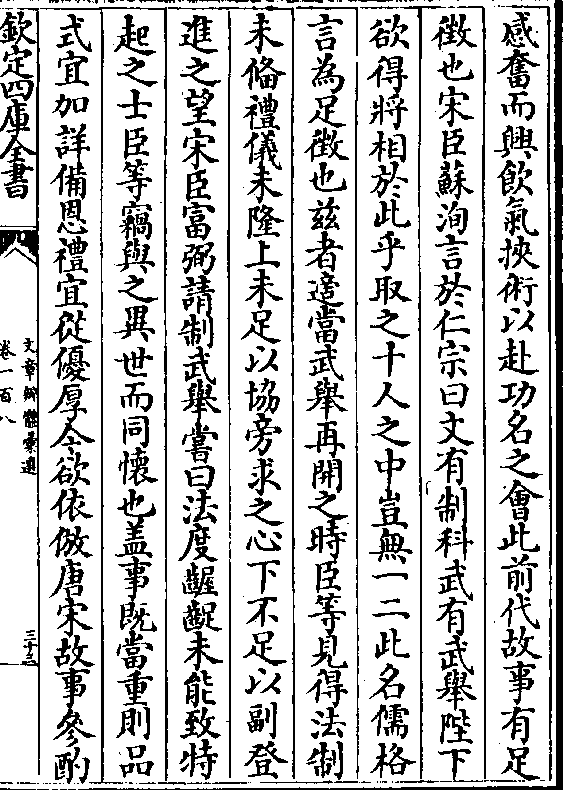 感奮而興飲氣挾術以赴功名之會此前代故事有足
徴也宋臣蘇洵言於仁宗曰文有制科武有武舉陛下
欲得將相於此乎取之十人之中豈無一二此名儒格
言為足徴也兹者適當武舉再開之時臣等見得法制
未備禮儀未隆上未足以協旁求之心下不足以副登
進之望宋臣富弼請制武舉嘗曰法度齷齪未能致特
起之士臣等竊與之異世而同懷也盖事既當重則品
式宜加詳備恩禮宜從優厚今欲依倣唐宋故事參酌
欽定四庫全書
文章辨體彚選
卷一百八
三十三